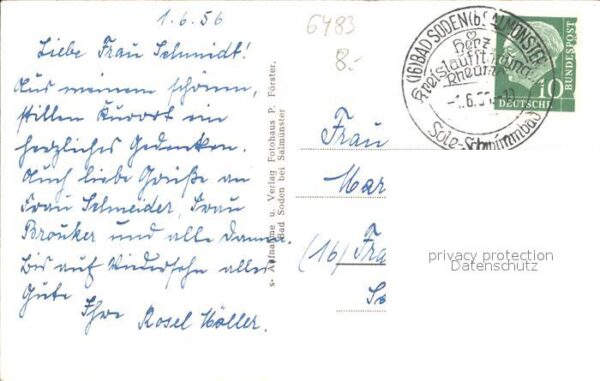 1.6.56
Liebe Frau Schmidt!
Aus meinem schönen,
stillen Kurort ein
herzliches Gedenken.
Auch liebe Grüße an
Frau Schneider, Frau
Brouker und alle Damen.
Bis auf Wiedersehn alles
Gute
Ihre Rosel Möller.
6483
8.-
s- Aufnahme u. Verlag Fotohaus P. Förster,
Bad Soden bei Salmünster
(16) BAD SODEN (b SALMÜNSTER
Herz
Kreislauf
Rheuma
-1.6.56
Sole-Schwimmbad
10
DEUTSCHE
BUNDESPOST
Frau
Mar
(16) Fra
privacy protection
Datenschutz